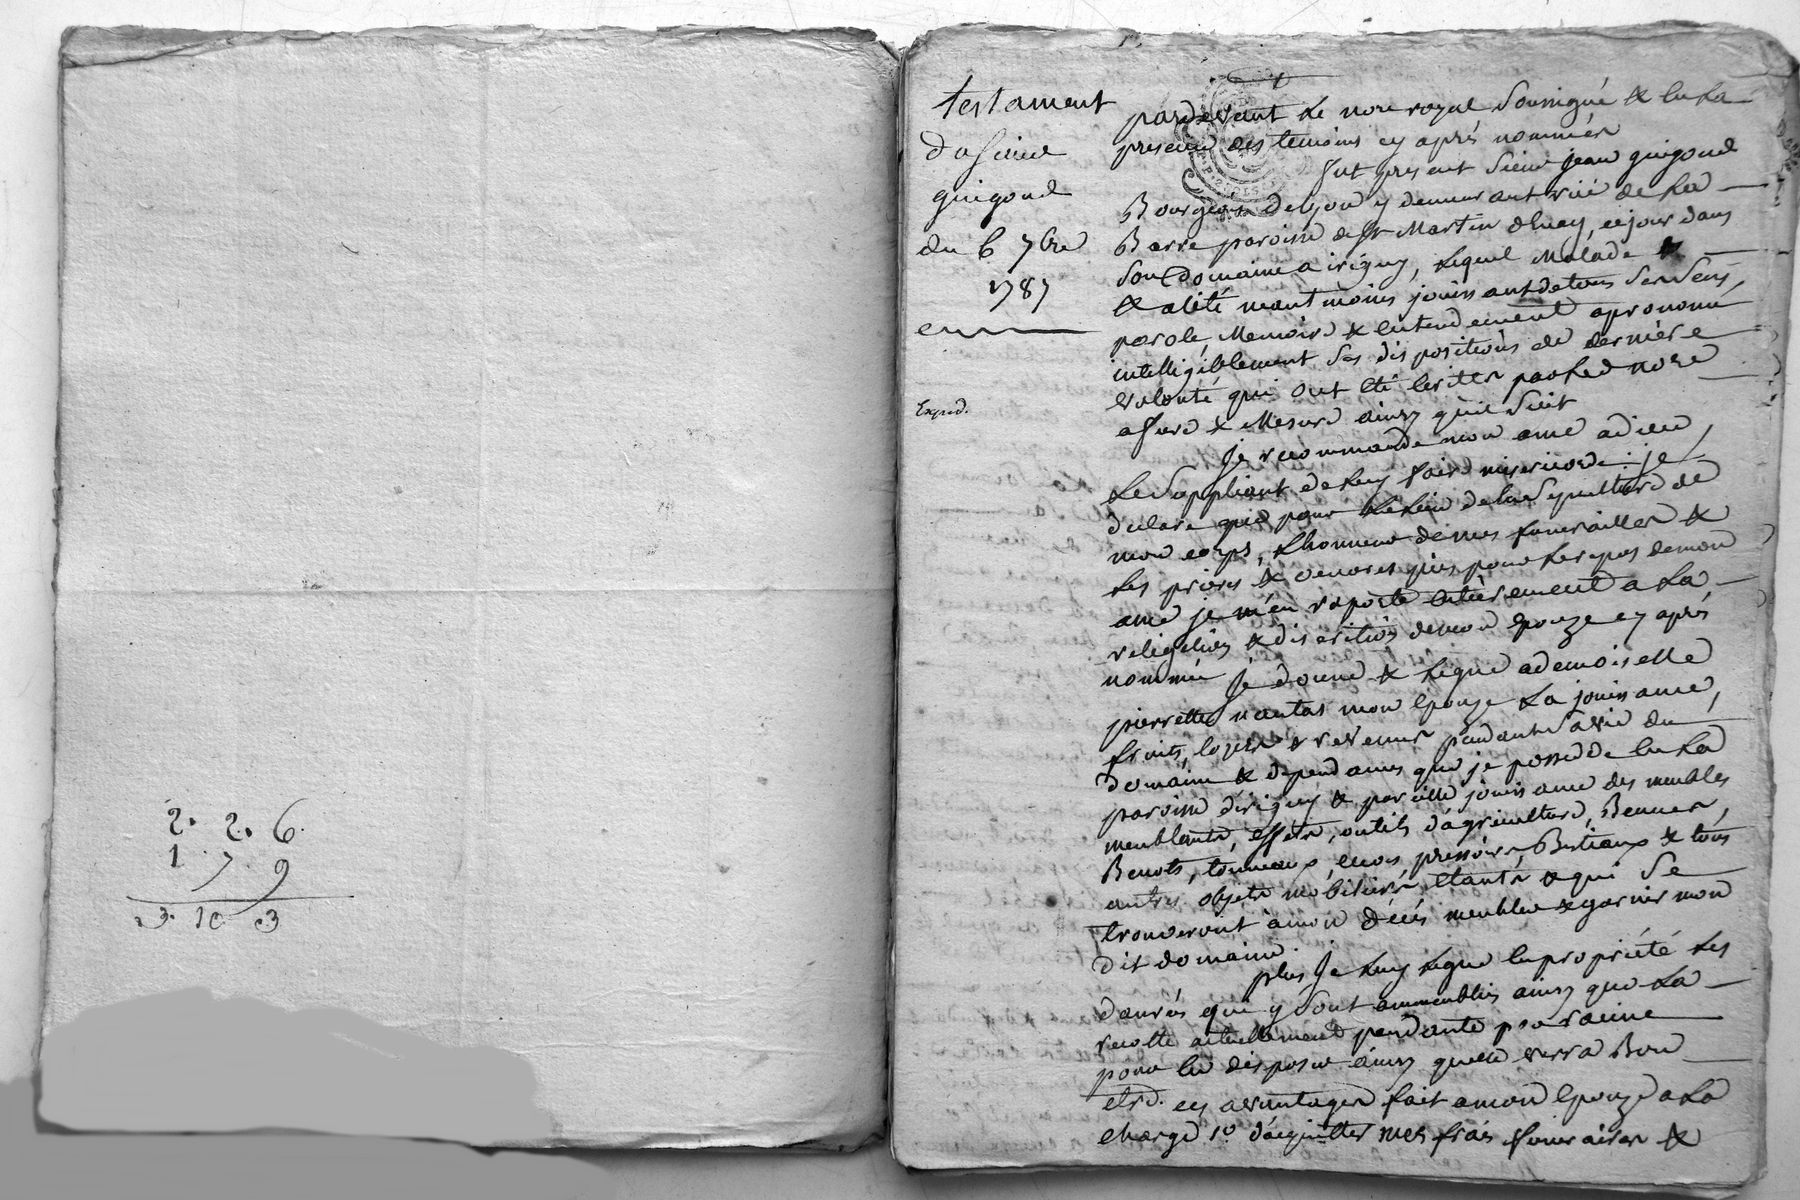 2. 2. 6.
1 . 7 . 9
3. 10 3
testament
du sieur
guigoud
du 6 7bre
1787
Exped.
pardevant le nore royal soussigné & en la
presence des temoins cy aprés nommés
fut present sieur jean guigoud
Bourgeois de lyon y demeurant rüe de la
Barre paroisse de st Martin dhnay, ce jour dans
son domaine a irigny, lequel malade &
& alité neantmoins jouissant de tous ses sens,
parole, Memoire & entendement a prononcé
intelligiblement ses dispositions de derniére
volonté qui ont été écrites par led nore
a fure & Mesure ainsy quil suit
Je recommande mon ame a dieu,
le supliant de luy faire misericorde : je
declare que pour le lieu de la sepulture de
mon corps, lhonneur de mes funerailles &
les prieres & oeuvres pies pour le repos de mon
ame je m'en raporte entierement a la
religion & discrétion de mon épouze cy aprés
nommée Je donne & legue a demoiselle
pierrette nantas mon épouze la jouissance,
fruits, loyers & revenus pendant sa vie du
domaine & dependances que je possede en la
paroisse dirigny & pareille jouissance des meubles
meublants, effets, outils dagriculture, Bennes,
Benots, tonneaux, cuves pressoirs, Bestiaux & tous
autres objets mobiliers étants & qui se
trouveront à mon décés meubler & garnir mon
dit domaine
plus Je luy legue en propriété les
danrés qui y sont ammeublés ainsy que la
recolte actuellement pendante par racine
pour en disposer ainsy quelle verra Bon
etre. ces avantages fait a mon épouze a la
charge 1o. d'acquitter mes frais funeraires &